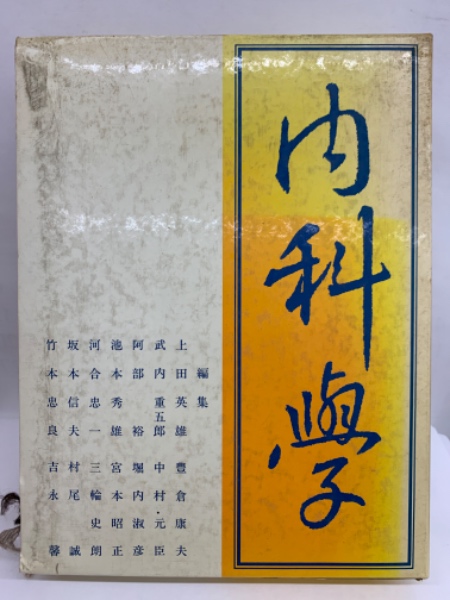 内科學
編集
上田英雄
武内重五郎
阿部裕
池本秀雄
河合忠一
坂本信夫
竹本忠良
豊倉康夫
中村・元臣
堀内淑彦
宮本昭正
三輪史朗
村尾誠
吉永馨